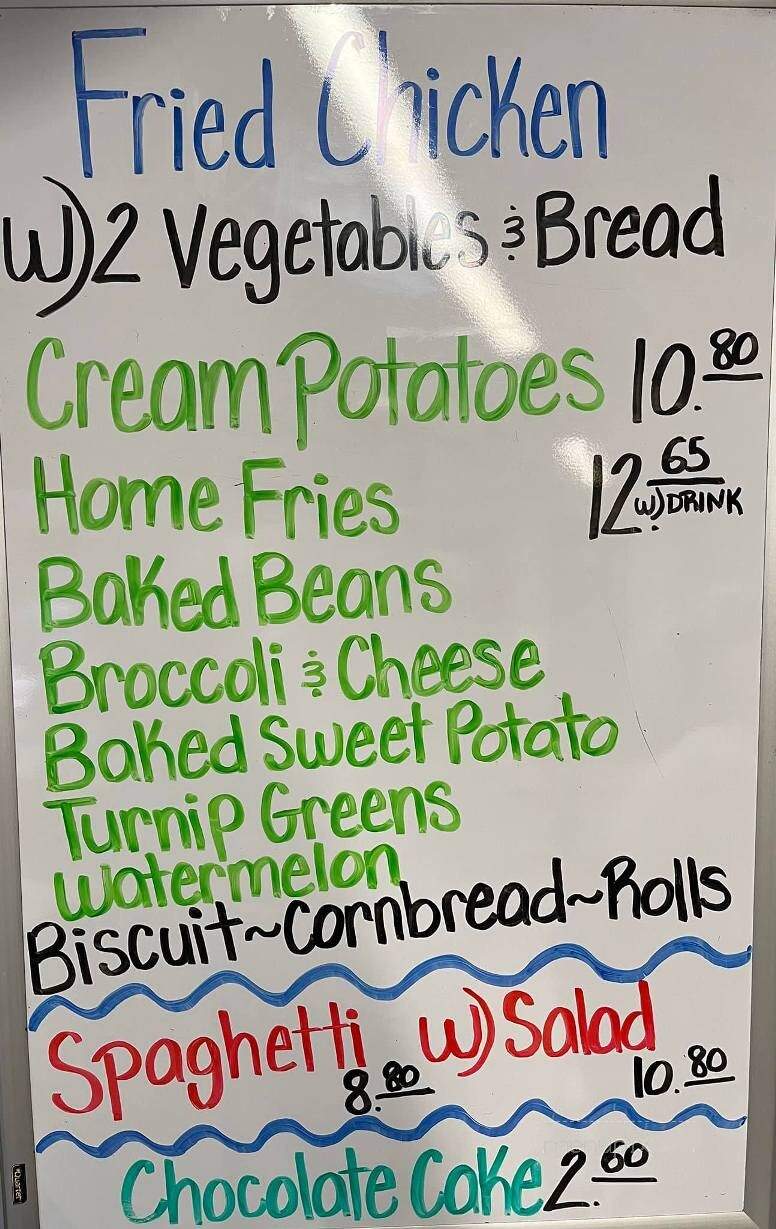 Fried Chicken
W) 2 Vegetables & Bread
Cream Potatoes 10.80
Home Fries 12.65
w) DRINK
Baked Beans
Broccoli & Cheese
Baked Sweet Potato
Turnip Greens
Watermelon
Biscuit~Cornbread~Rolls
Spaghetti w) Salad
8.80 10.80
Chocolate Cake 2.60
Quartet